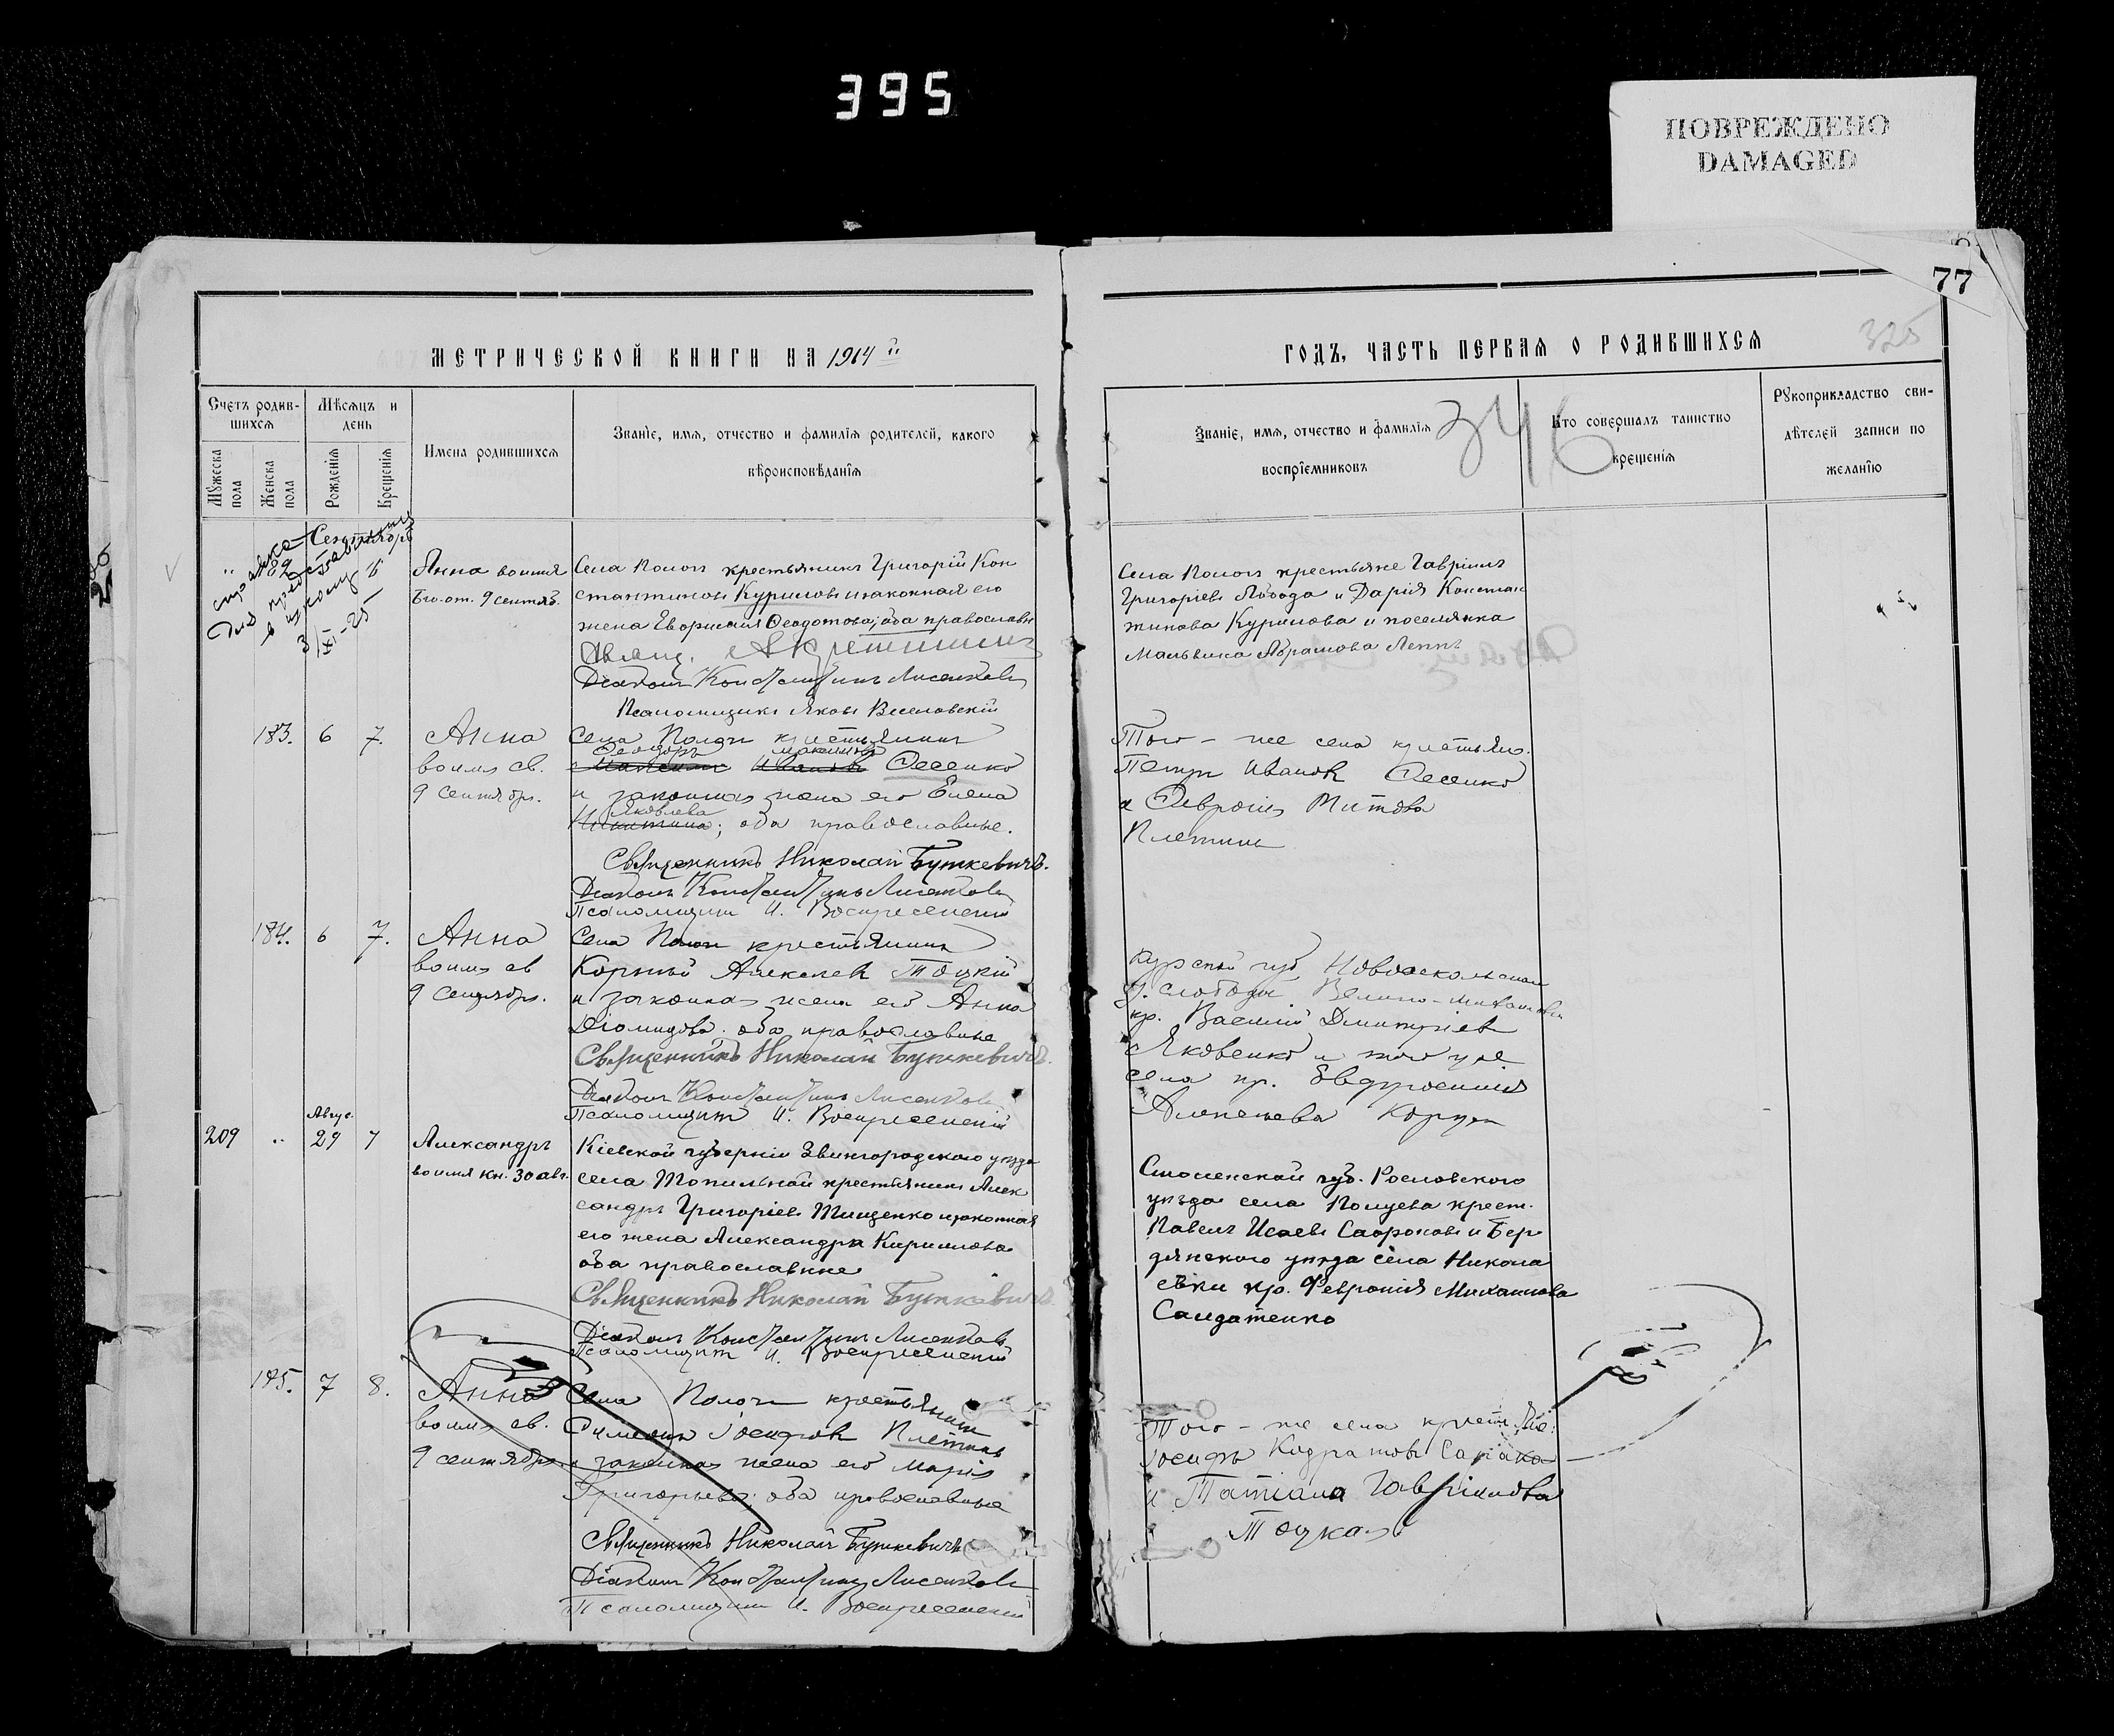 395
ПОВРЕЖДЕНО
DAMAGED
77
325
МЕТРИЧЕСКОЙ КНИГИ НА 1914й
ГОДЪ, ЧАСТЬ ПЕРВАЯ О РОДИВШИХСЯ
Счетъ родив-
шихся
Мѣсяцъ и
день
Мужеска
пола
Женска
пола
Рожденія
Крещенія
Имена родившихся
Званіе, имя, отчество и фамилія родителей, какого
вѣроисповѣданія
Званіе, имя, отчество и фамилія
воспріемниковъ
346
Кто совершалъ таинство
крещенія
Рукоприкладство сви-
дѣтелей записи по
желанію
справка
для
3/XI-25
Анна во имя
Бго.-от. 9 сентяб.
Села Пологъ крестьянинъ Григорій Кон
стантиновъ Куриловъ и законная его
жена Феодотова; оба православн
Діаконъ Константинъ Лисенковъ
Псаломщикъ Яковъ Веселовскій
Села Пологъ крестьяне Гавріилъ
Григоріевъ Лобода и Дарія Констан
тинова Курилова и поселянка
Абрамова
183. 6 7.
Анна
во имя св.
9 сентября.
Села Пологъ крестьянинъ
Феодоръ Максимовъ
Ивановъ Фесенко
и законная жена его Елена
Яковлева
Никитина; оба православные.
Священникъ Николай Буткевичъ.
Діаконъ Константинъ Лисенковъ
Псаломщикъ И. Воскресенскій
Того-же села крестьяне.
Петръ Ивановъ Фесенко
и Титова
184. 6 7.
Анна
во имя св
9 сентября.
Села Пологъ крестьянинъ
Корнѣй Алексѣевъ Тоцкій
и законная жена его Анна
Діомидова. оба православные
Священникъ Николай Буткевичъ.
Діаконъ Константинъ Лисенковъ
Псаломщикъ И. Воскресенскій
Курской губ Новооскольскаго
у. слободы
кр. Василій Дмитріевъ
Яковенко и того же
села кр. Евфросинія
Алексѣева
Авгус.
209 " 29 7
Александръ
во имя кн. 30 авг.
Кіевской губерніи Звенигородскаго уѣзда
села Топильной крестьянинъ Алек
сандръ Григоріевъ Тищенко и законная
его жена Александра Кириллова
оба православные
Священникъ Николай Буткевичъ.
Діаконъ Константинъ Лисенковъ
Псаломщикъ И. Воскресенскій
Смоленской губ. Рославскаго
уѣзда села крест.
Павелъ Исаевъ Сафроновъ и Бер
дянскаго уѣзда села Никола
евки кр. Февронія Михаилова
Салдатенко
185. 7 8.
Анна
во имя св.
9 сентября.
Села Пологъ крестьянинъ
Симеонъ Іосифовъ
и законная жена его Марія
Григорьева; оба православные
Священникъ Николай Буткевичъ
Діаконъ Константинъ Лисенковъ
Псаломщикъ И. Воскресенскій
Того-же села крестьяне:
Іосифъ
и Татіана Гавріилова
Тоцкая